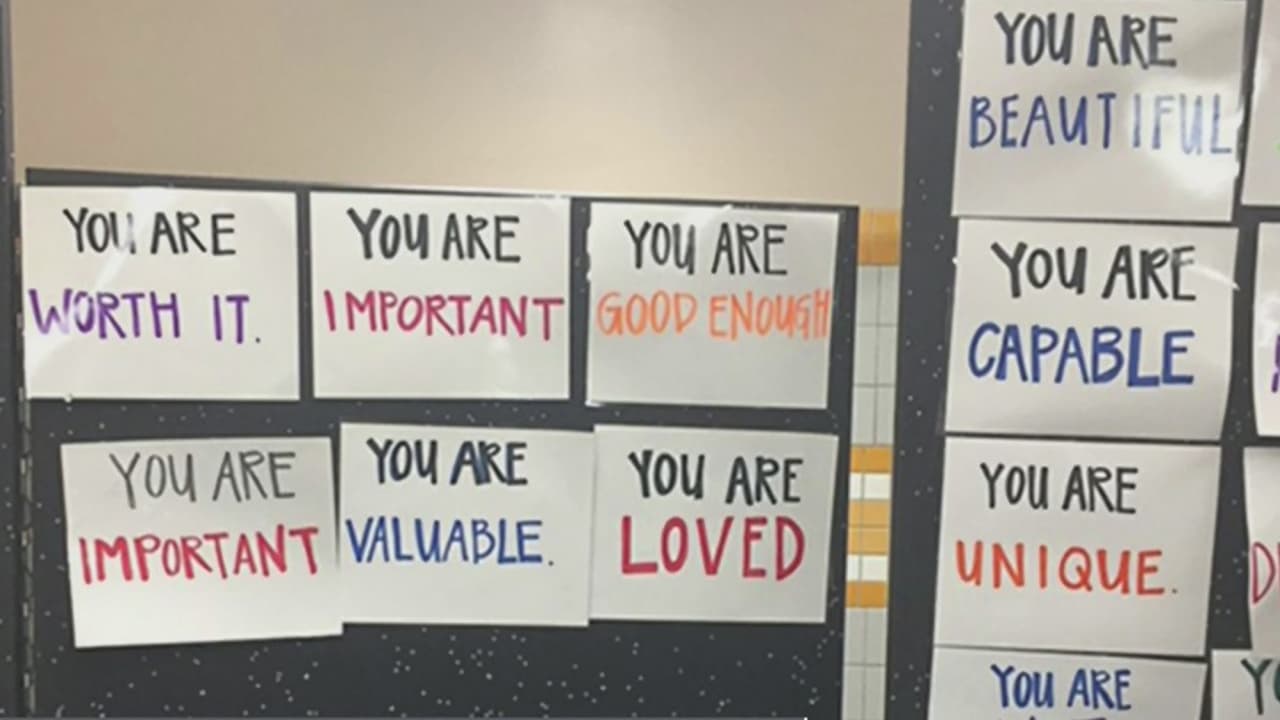 YOU ARE
WORTH IT.
YOU ARE
IMPORTANT
YOU ARE
GOOD ENOUGH
YOU ARE
IMPORTANT
YOU ARE
VALUABLE.
YOU ARE
LOVED
YOU ARE
BEAUTIFUL
YOU ARE
CAPABLE
YOU ARE
UNIQUE.
YOU ARE